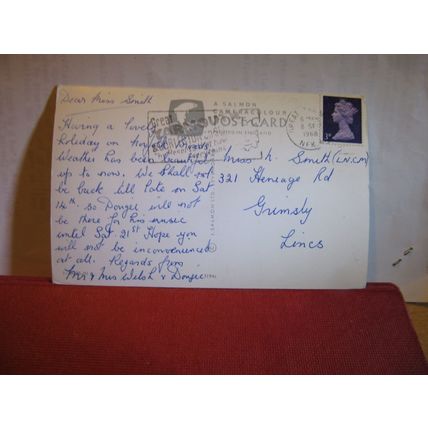 Dear Miss Smith
Having a lovely
holiday on Norfolk Broads
Weather has been beautiful
up to now. We shall not
be back till late on Sat
14th, so Dougie will not
be there for his music
until Sat. 21st Hope you
will not be inconvenienced
at all. Regards from
Mr & Mrs Welsh & Dougie
A SALMON
CAMERACOLOUR
POST CARD
PRINTED IN ENGLAND
Great
1968
NFK
3d
Miss K. Smith (L.N.C.M)
321 Heneage Rd
Grimsby
Lincs